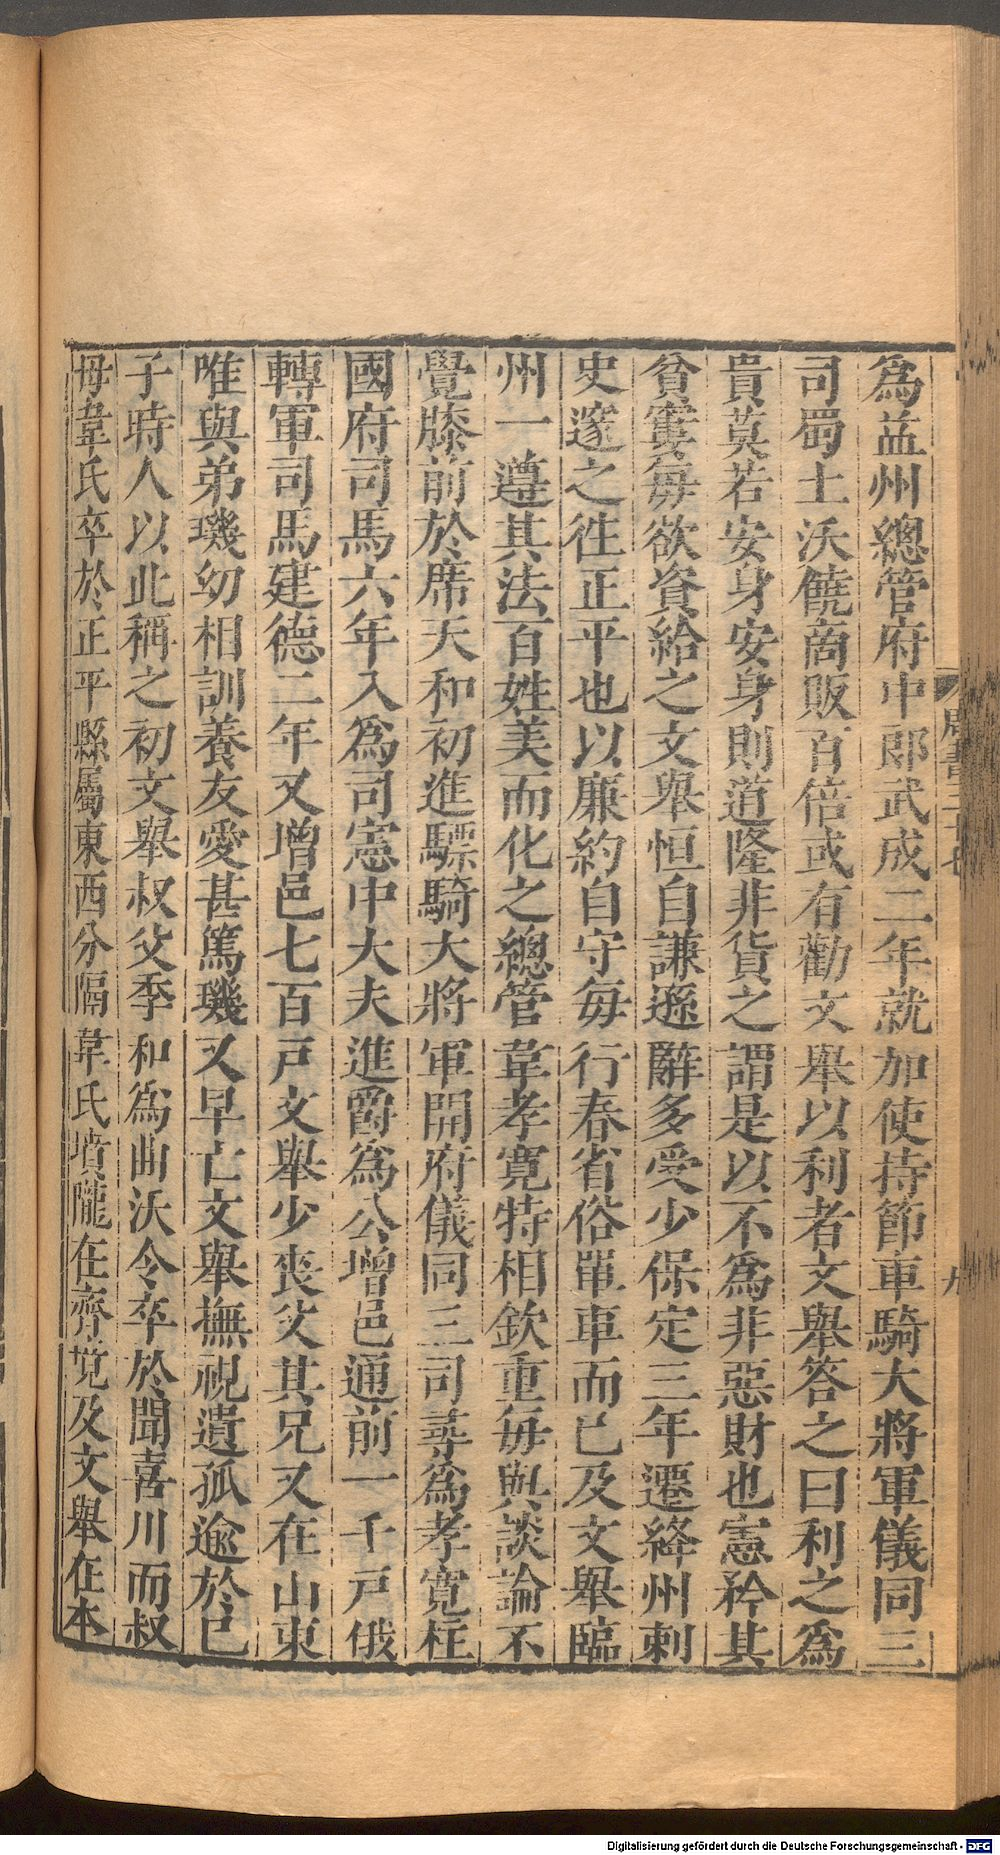 爲益州總管府中郎武成二年就加使持節車騎大將軍儀同三
司蜀土沃饒商販百倍或有勸文舉以利者文舉答之曰利之爲
貴莫若安身安身則道隆非貨之謂是以不爲非惡財也憲矜其
貧窶每欲資給之文舉恒自謙遜辭多受少保定三年遷絳州刺
史邃之徃正平也以廉約自守每行春省俗單車而已及文舉臨
州一遵其法百姓美而化之總管韋孝寛特相欽重每與談論不
覺膝前於席天和初進驃騎大將軍開府儀同三司尋爲孝寛柱
國府司馬六年入爲司憲中大夫進爵爲公增邑通前一千戸俄
轉軍司馬建德二年又增邑七百戸文舉少喪父其兄又在山東
唯與弟璣幼相訓養友愛甚篤璣又早亡文舉撫視遺孤逾於己
子時人以此稱之初文舉叔父季和爲曲沃令卒於聞喜川而叔
母韋氏卒於正平縣屬東西分隔韋氏墳隴在齊境及文舉在本
九
Digitalisierung gefördert durch die Deutsche Forschungsgemeinschaft - DFG